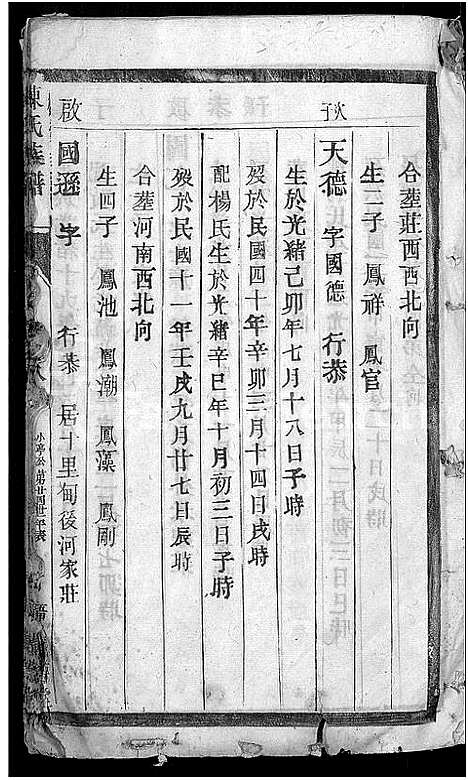 合葬莊西西北向
生二子 鳳祥 鳳官
天德 字國德 行恭
生於光緒己卯年七月十八日子時
歿於民國四十年辛卯三月十四日戌時
配楊氏生於光緒辛巳年十月初三日子時
歿於民國十一年壬戌九月廿七日辰時
合葬河南西北向
生四子 鳳池 鳳潮 鳳藻 鳳剛
啟
國遜 字 行恭 居十里甸後河家莊
陳氏族譜
小亭公第廿四世年表